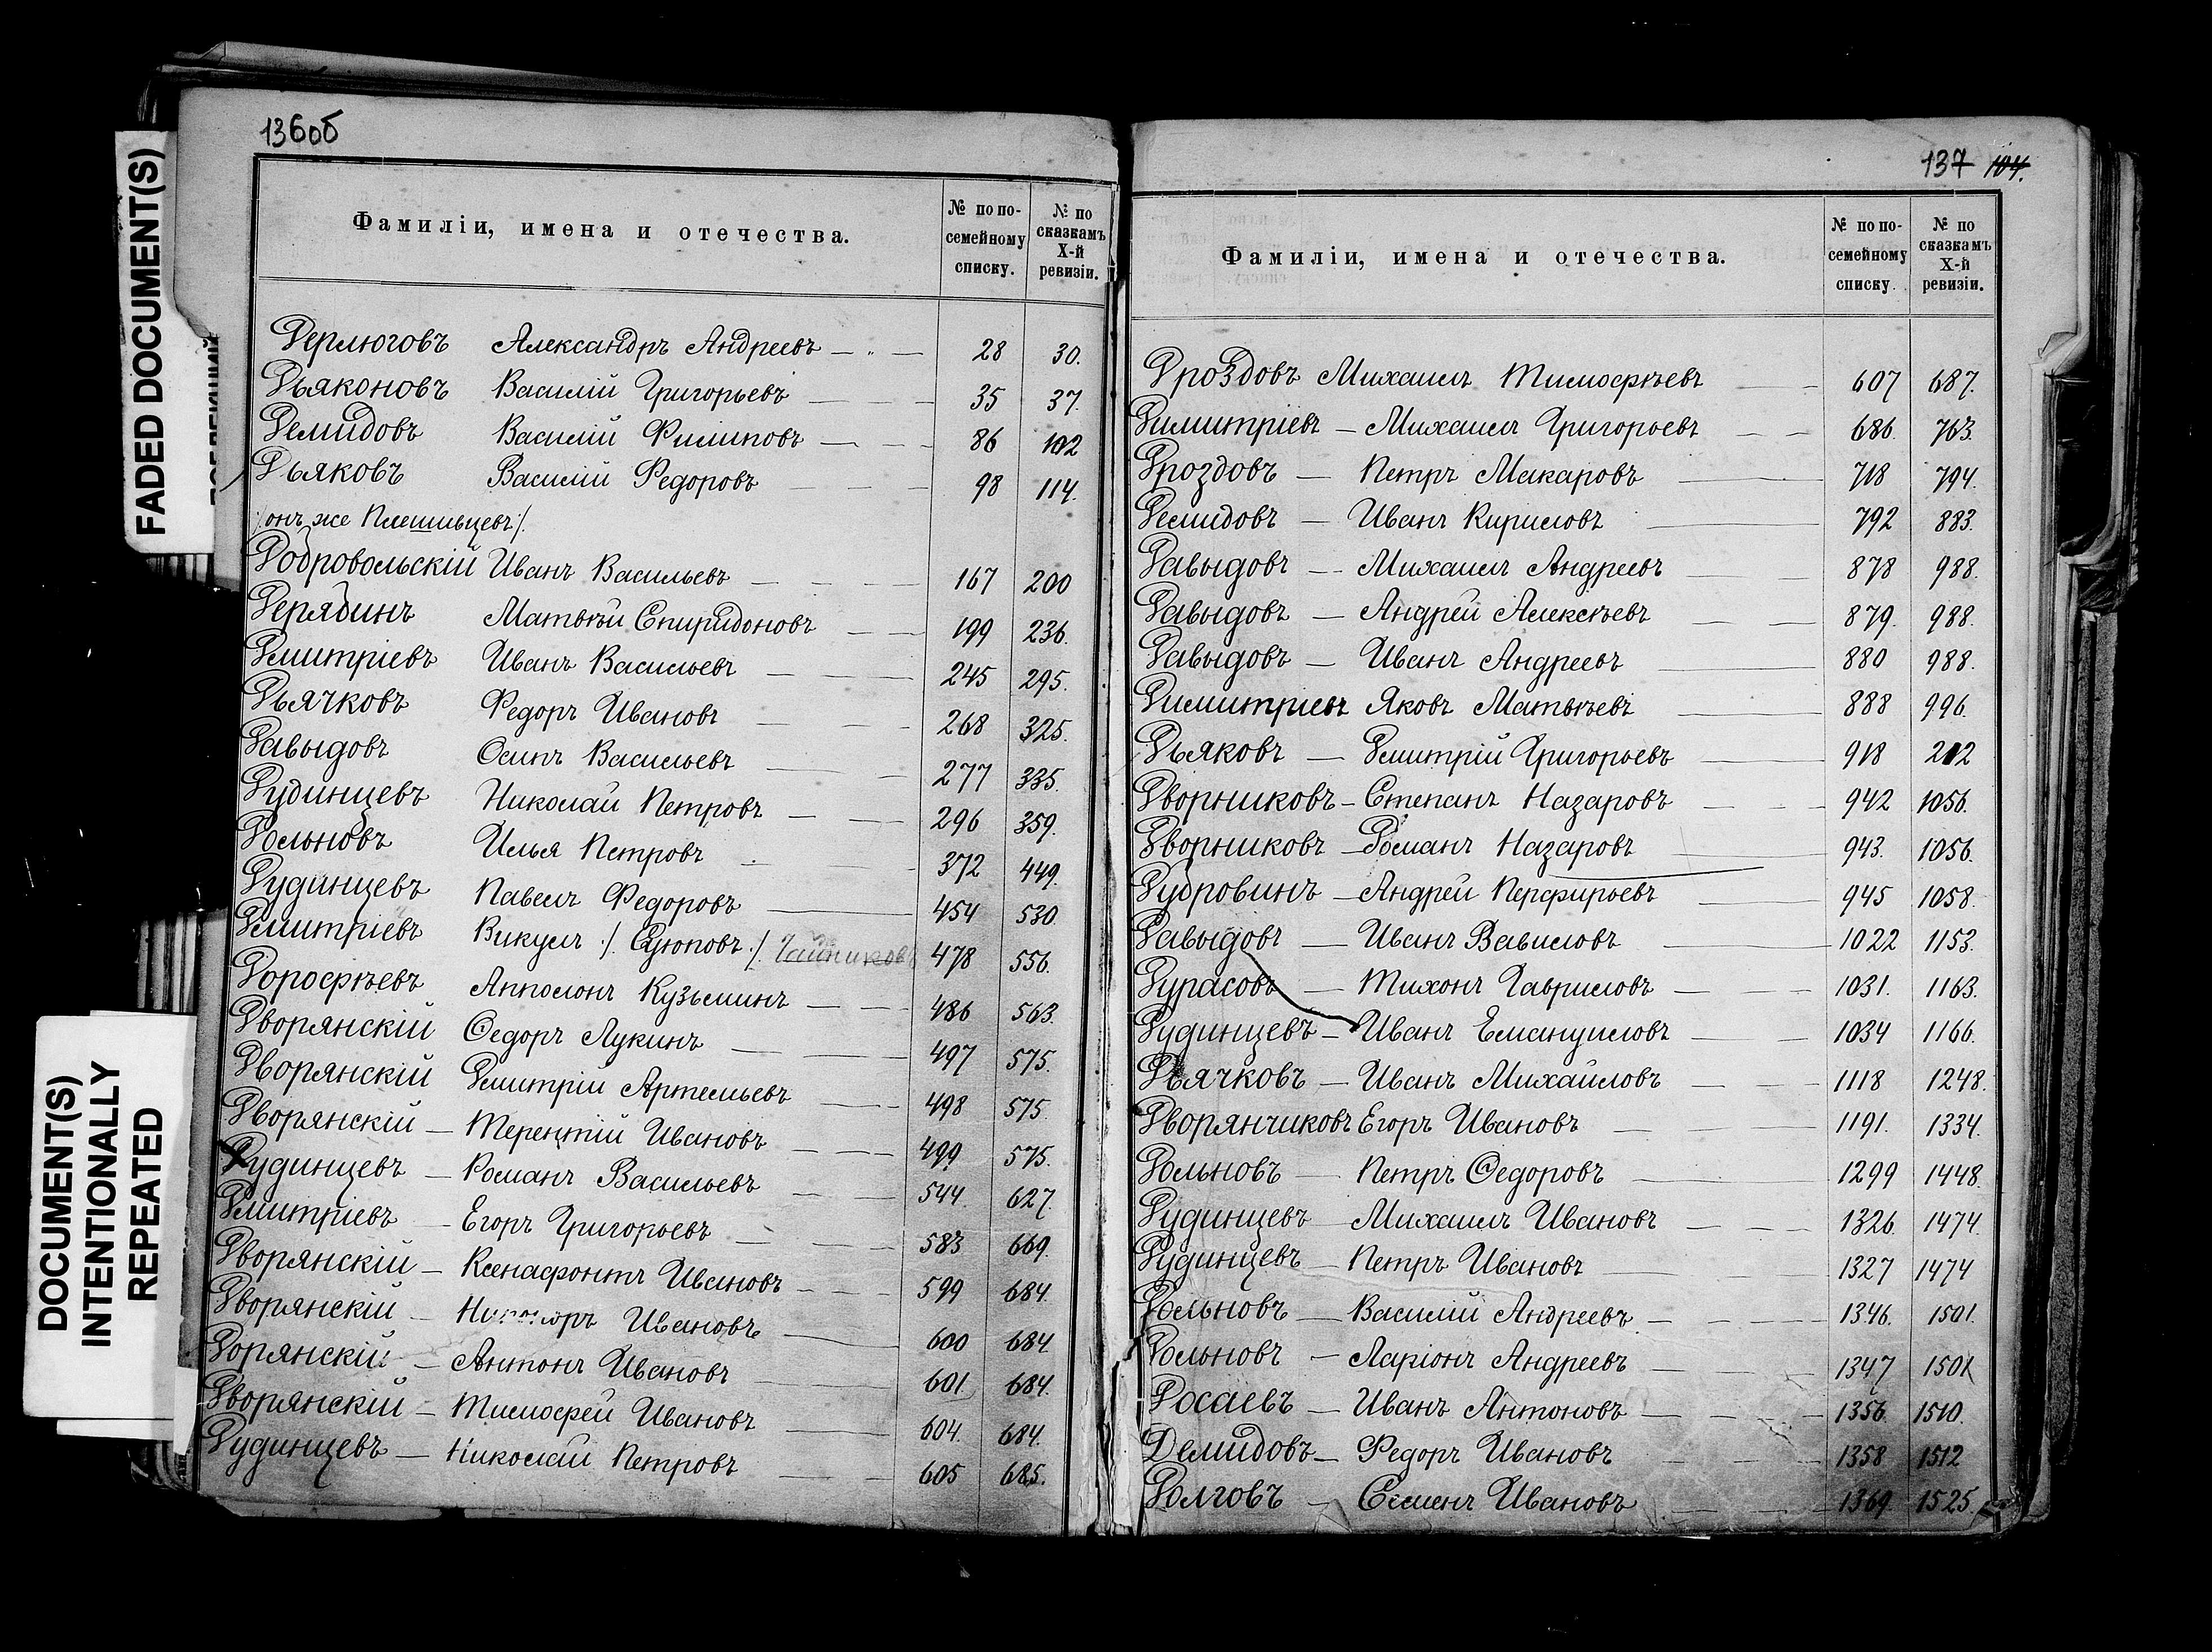 136об
Фамиліи, имена и отечества. № по по-семейному списку. № по сказкамъ X-й ревизіи.
Дерлюговъ Александръ Андреевъ — „ — 28 30.
Дьяконовъ Василій Григорьевъ — — — 35 37.
Демидовъ Василій Филиповъ — — — 86 102
Дьяковъ Василій Федоровъ — — 98 114.
/:онъ же Плешивцевъ:/.
Добровольскій Иванъ Васильевъ — — — 167 200
Дерябинъ Матвѣй Спиридоновъ — — 199 236.
Дмитріевъ Иванъ Васильевъ — — — 245 295.
Дьячковъ Федоръ Ивановъ — — 268 325.
Давыдовъ Осипъ Васильевъ — — 277 335.
Дудинцевъ Николай Петровъ — — 296 359.
Дольновъ Илья Петровъ — — 372 449.
Дудинцевъ Павелъ Федоровъ — 454 530.
Дмитріевъ Викулъ /. Сутоповъ ./. Чайниковъ 478 556.
Дорофѣевъ Апполонъ Кузьминъ — — 486 563.
Дворянскій Ѳедоръ Лукинъ — — 497 575.
Дворянскій Дмитрій Артемьевъ — — 498 575.
Дворянскій — Терентій Ивановъ — — — 499 575.
Дудинцевъ — Романъ Васильевъ — — 544 627.
Дмитріевъ — Егоръ Григорьевъ — — 583 669.
Дворянскій — Ксенафонтъ Ивановъ — — — 599 684.
Дворянскій — Ивановъ — 600 684
Дорянскій — Антонъ Ивановъ — 601 684.
Дворянскій — Тимофей Ивановъ — 604. 684.
Дудинцевъ — Николай Петровъ — — 605 685.
137 104.
Фамиліи, имена и отечества. № по по-семейному списку. № по сказкамъ X-й ревизіи.
Дроздовъ Михаилъ Тимофѣевъ — — 607 687.
Димитріевъ — Михаилъ Григорьевъ — — 686. 763.
Дроздовъ — Петръ Макаровъ — 718 794.
Демидовъ — Иванъ Кириловъ — 792 883.
Давыдовъ — Михаилъ Андреевъ — — 878 988.
Давыдовъ — Андрей Алексѣевъ — — 879. 988.
Давыдовъ — Иванъ Андреевъ — 880 988.
Димитріевъ Яковъ Матвѣевъ — 888 996.
Дьяковъ — Дмитрій Григорьевъ — 918 212
Дворниковъ — Степанъ Назаровъ — — — 942 1056.
Дворниковъ — Романъ Назаровъ — 943. 1056.
Дубровинъ — Андрей Перфирьевъ — — 945 1058.
Давыдовъ — Иванъ Вавиловъ — 1022 1153.
Дурасовъ — Тихонъ Гавриловъ — — — 1031. 1163.
Дудинцевъ — Иванъ Емануиловъ — — 1034 1166.
Дьячковъ — Иванъ Михайловъ — — — 1118 1248.
Дворянчиковъ Егоръ Ивановъ — — — 1191. 1334.
Дольновъ — Петръ Ѳедоровъ — — 1299 1448.
Дудинцевъ — Михаилъ Ивановъ — — — 1326. 1474.
Дудинцевъ — Петръ Ивановъ — — — 1327 1474
Дольновъ — Василій Андреевъ — — — 1346. 1501.
Дольновъ — Ларіонъ Андреевъ — — — 1347 1501
Досаевъ — Иванъ Антоновъ — — — 1356. 1510.
Демидовъ — Федоръ Ивановъ — — — 1358 1512
Долговъ — Семенъ Ивановъ — — — 1369. 1525.
FADED DOCUMENT(S)
DOCUMENT(S)
INTENTIONALLY
REPEATED